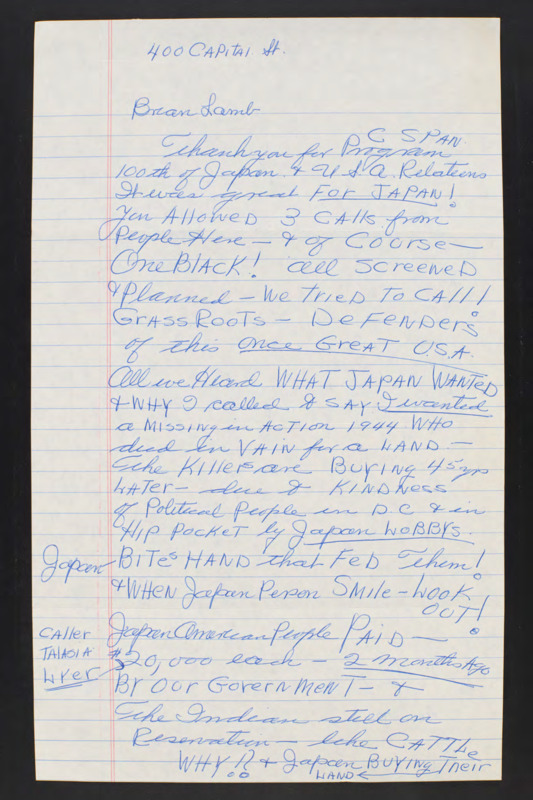 400 CAPital St.
Brian Lamb
C SPAN
Thank you for Program
100th of Japan & USA Relations
It was great FOR JAPAN!
You Allowed 3 CAlls from
People Here — & of Course —
One BlACK! all SCREENED
& Planned — We TRieD To CAll!
GRASS ROOTS — DeFeNDeRS
of this once GReAT U.S.A.
All we Heard WHAT JAPAN WANTeD
& WHY I called to SAY I wanted
a Missing in ACTION 1944 WHO
died in VAIN for a LAND —
The Killers are BUYING 45 yrs
LATeR — due to KINDNess
of Political People in D.C & in
HIP POCKeT by Japan LOBBYS.
Japan BITes HAND that FeD Them!
& WHEN Japan Person SMile — LOOK
OUT!
Japan American People PAID —
CAller
$20,000 each — 2 months Ago
Lyer
BY OUR GOVeRNMENT — &
The Indian still on
Reservation — like CATTLe
WHY!? & Japan BUYING Their
LAND